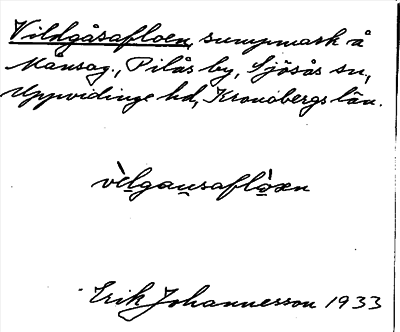 Vildgåsafloen, sumpmark å
Månsag., Pilås by, Sjösås sn,
Uppvidinge hd, Kronobergs län.
vìlgau̲saflò̲xn
Erik Johannesson 1933